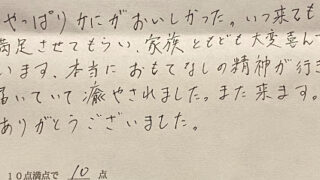 やっぱりかにがおいしかった。いつ来ても
満足させてもらい、家族ともども大変喜んで
います。本当におもてなしの精神が行き
届いていて癒やされました。また来ます。
ありがとうございました。
10点満点で 10 点